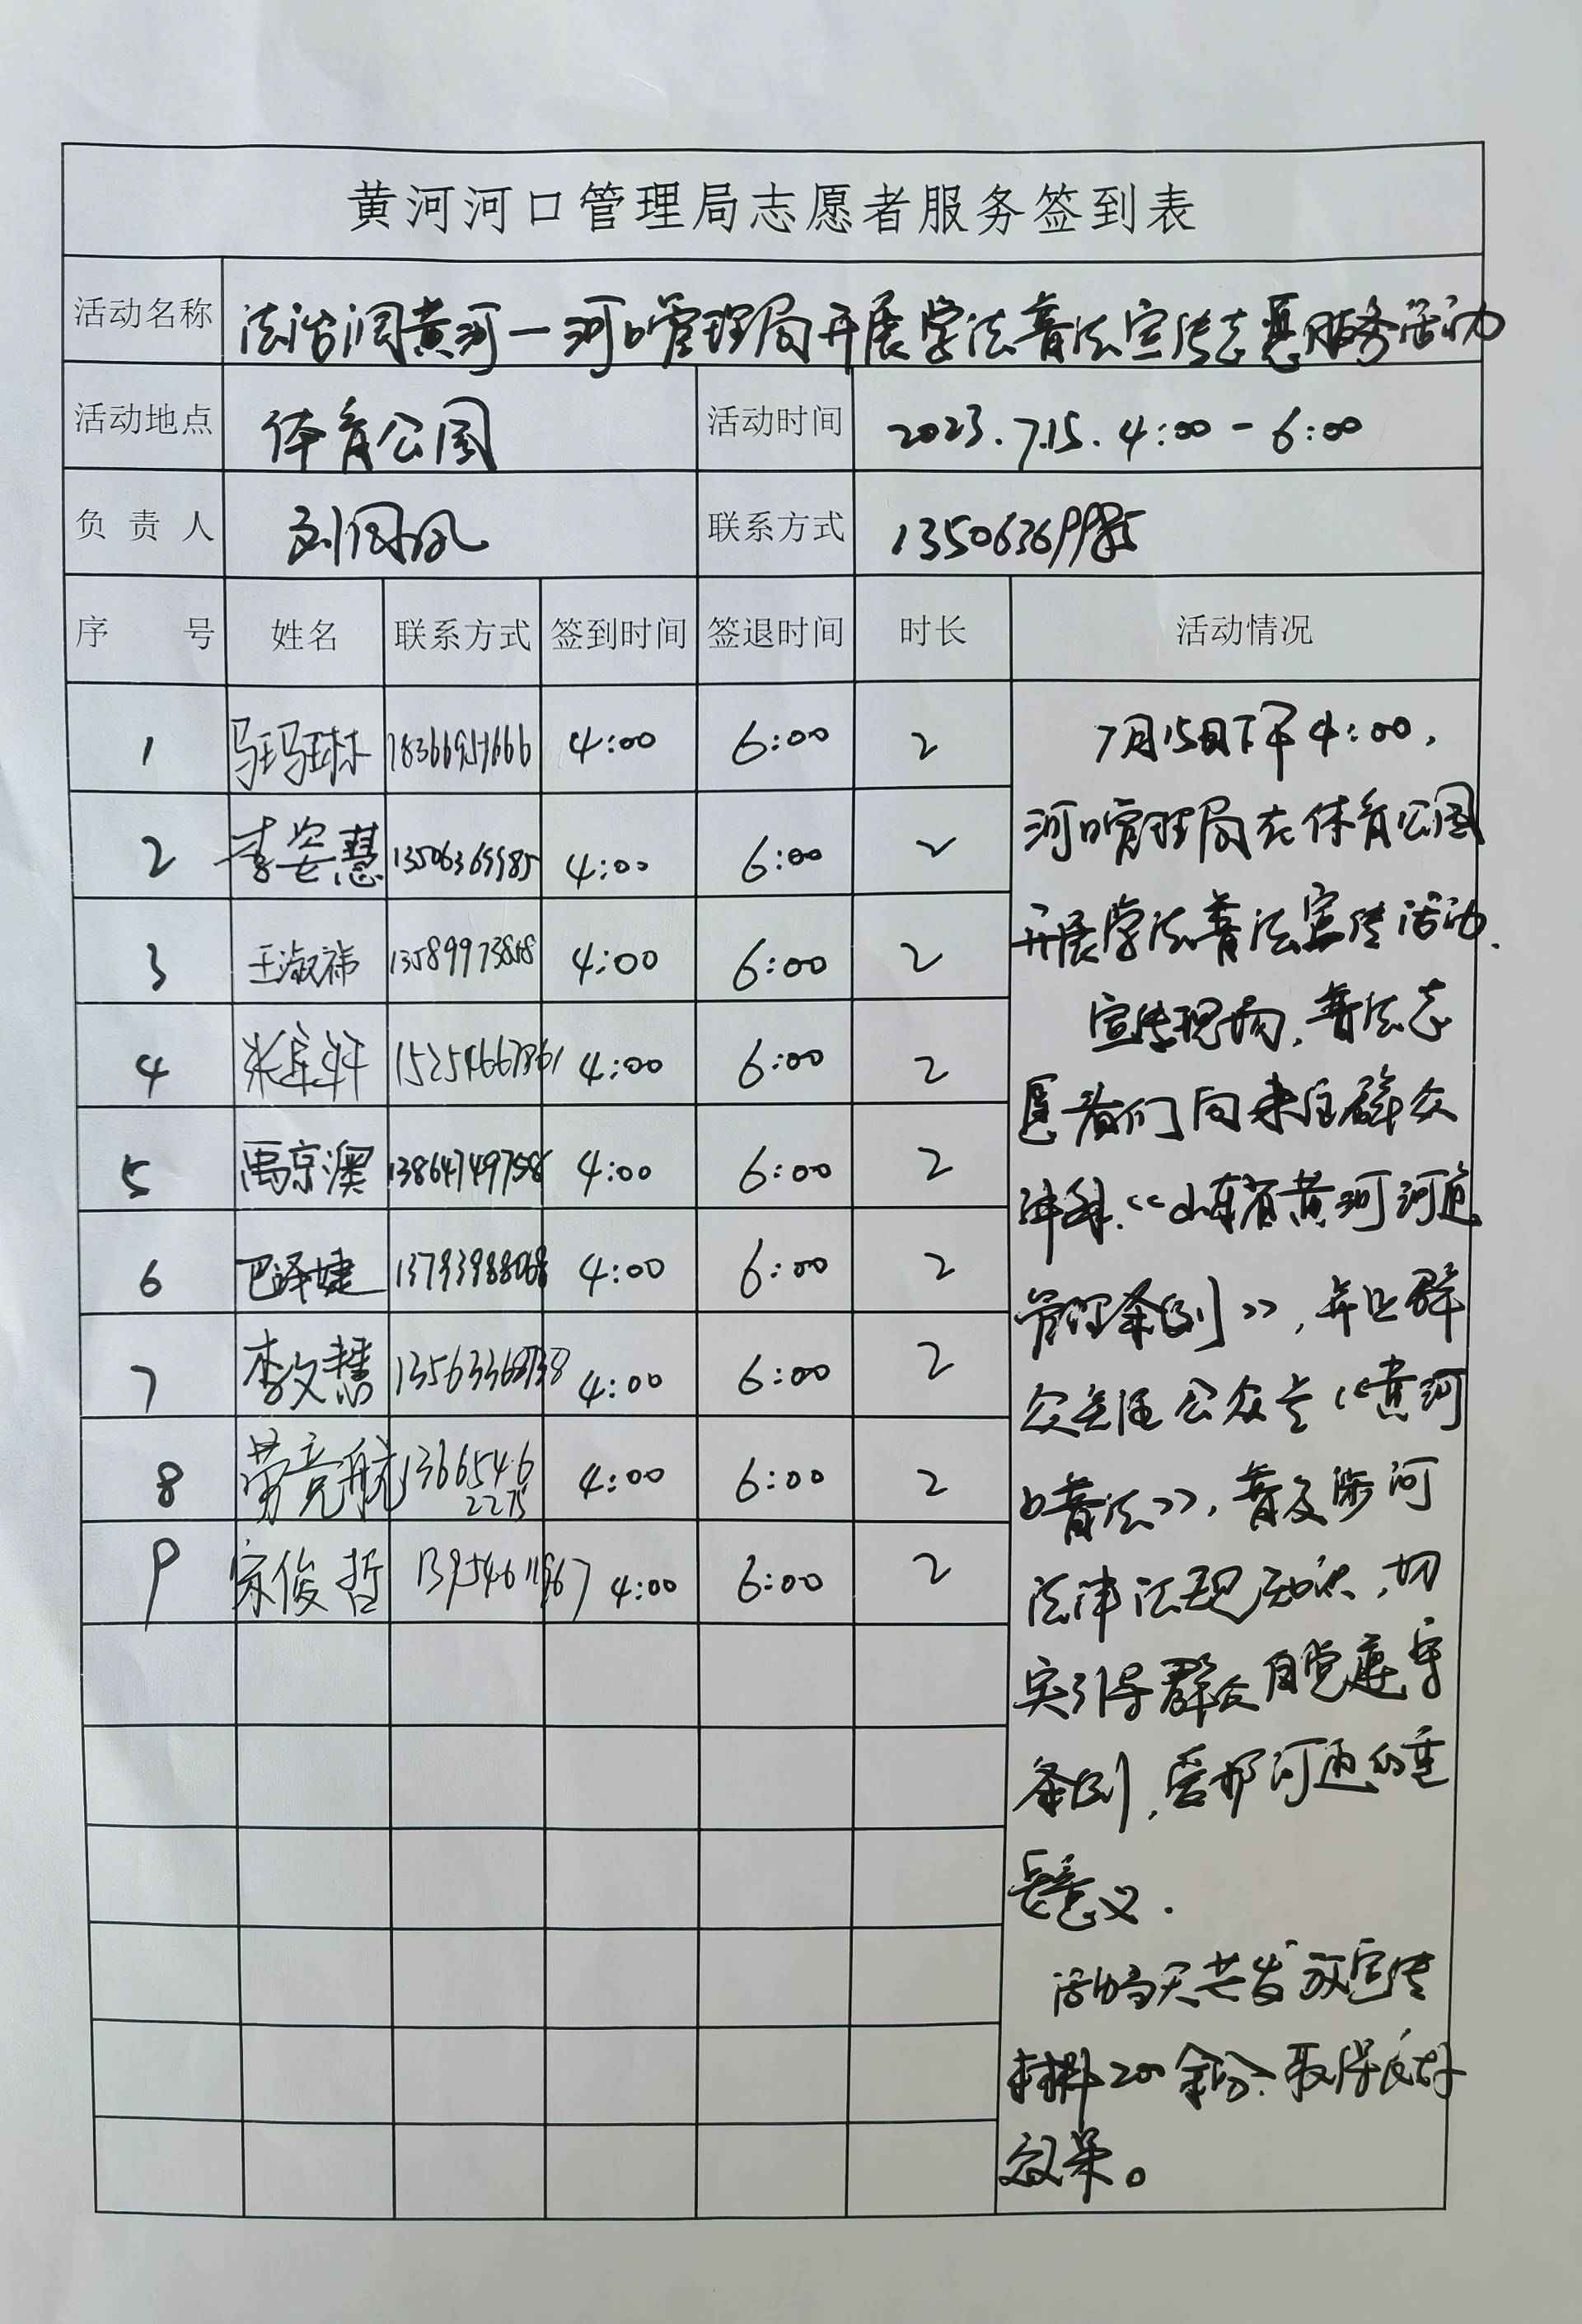 黄河河口管理局志愿者服务签到表
活动名称 法治润黄河—河口管理局开展学法普法宣传志愿服务活动
活动地点 体育公园 活动时间 2023.7.15. 4:00-6:00
负责人 联系方式 13506369985
序号 姓名 联系方式 签到时间 签退时间 时长 活动情况
1 4:00 6:00 2
2 李姿慧 13506369985 4:00 6:00 2
3 王淑祎 4:00 6:00 2
4 4:00 6:00 2
5 禹京澳 4:00 6:00 2
6 巴泽婕 4:00 6:00 2
7 李文慧 4:00 6:00 2
8 劳竞航 13665462275 4:00 6:00 2
9 宋俊哲 4:00 6:00 2
7月15日下午4:00,
河口管理局在体育公园
开展学法普法宣传活动.
宣传现场,普法志
愿者们向来往群众
讲解《山东省黄河河道
管理条例》,并让群
众关注公众号《黄河
口普法》,普及涉河
法律法规知识,切
实引导群众自觉遵守
条例,河道的重
要意义.
活动当天共发放宣传
材料200余份.取得良好
效果。